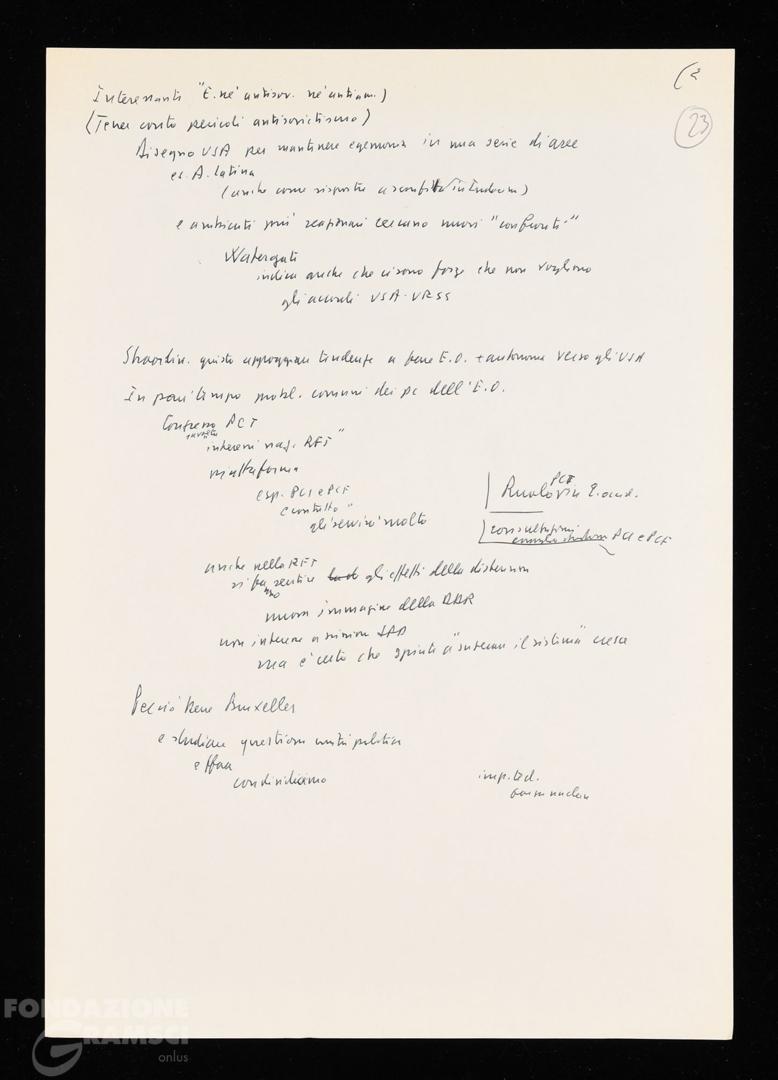 (2
23
Interessanti "E. né antisov. né antiam.)
(Tener conto pericoli antisovietismo)
Disegno USA per mantenere egemonia in una serie di aree
es. A. latina
(anche come risposta a sconfitta in Indocin)
e ambienti più reazionari cercano nuovi "confronti"
Watergate
indica anche che ci sono forze che non vogliono
gli accordi USA-URSS
Straordin. questo appoggiare tendenze a fare E.O. + autonoma verso gli USA
In pari tempo probl. comuni dei pc dell'E.O.
Congresso PCT
interessi naz. RFT"
piattaforma
esp. PCI e PCF
e contatto"
gli servirà molto
Ruolo PCI in E. occid.
consultazioni
PCI e PCF
anche nella RFT
si fa sentire gli effetti della distensione
nuova immagine della DDR
non interesse a sinistra SPD
ma è certo che spinta a "superare il sistema" cresce
Perciò bene Bruxelles
e studiare questione unità politica
condividiamo
imp. ted.